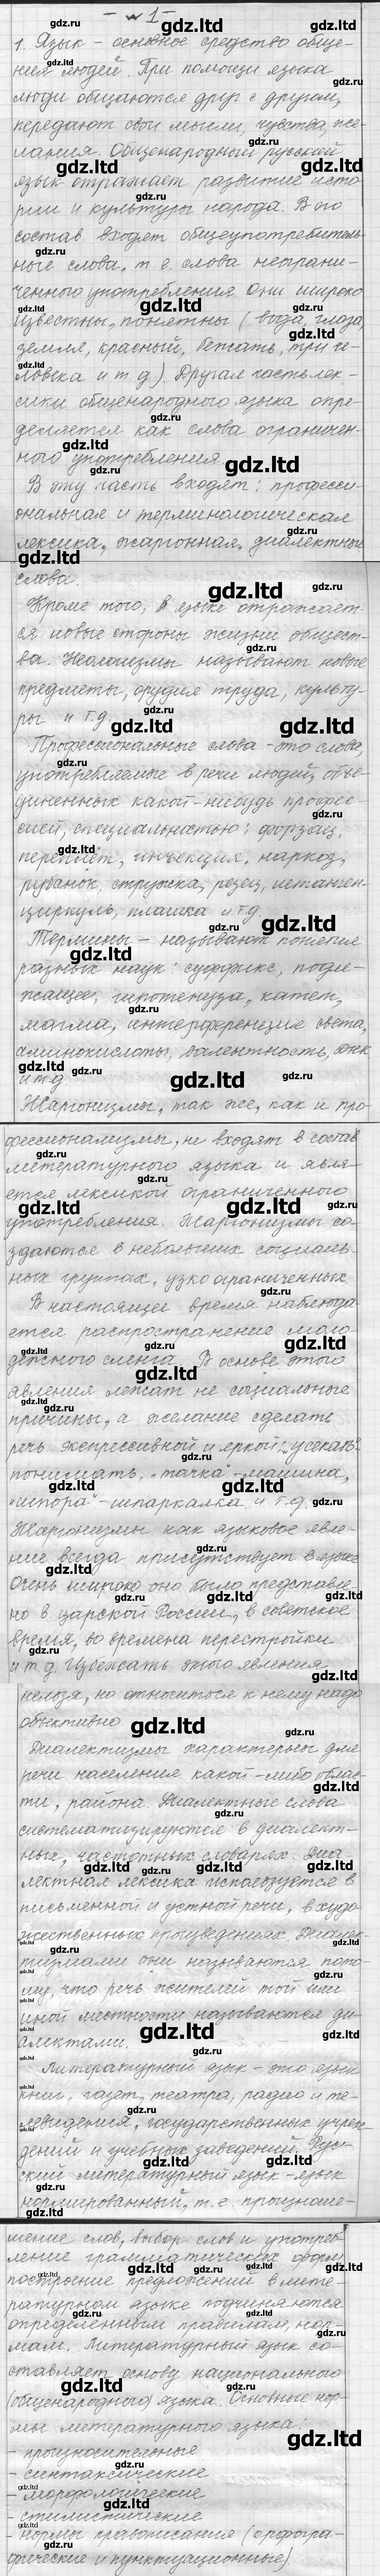 - № 1 -
1. Язык - основное средство обще-
ния людей. При помощи языка
люди общаются друг с другом,
передают свои мысли, чувства, же-
лания. Общенародный русский
язык отражает развитие исто
рии и культуры народа. В его
состав входят общеупотребитель-
ные слова, т е слова неограни-
ченного употребления. Они широко
известны, понятны (вода, глаза,
земля, красный, бежать, три че-
ловека и т д). Другая часть лек-
сики общенародного языка опре-
деляется как слова ограничен-
ного употребления
В эту часть входят: професси-
ональная и терминологическая
лексика, жаргонная, диалектные
слова.
Кроме того, в языке отражает-
ся новые стороны жизни общест-
ва. Неологизмы называют новые
предметы, орудия труда, культу-
ры и т.д.
Профессиональные слова - это слова,
употребляемые в речи людей, объе-
диненных какой-нибудь профес-
сией, специальностью: форзац,
переплёт, инъекция, наркоз,
рубанок, стружка, резец, штанген-
циркуль, плашка и т д
Термины - называют понятия
разных наук: суффикс, подле-
жащее, гипотенуза, катет,
магма, интерференция света,
аминокислоты, валентность,
и т д
Жаргонизмы, так же, как и про-
фессионализмы, не входят в состав
литературного языка и явля-
ется лексикой ограниченного
употребления. Жаргонизмы со-
здаются в небольших социаль-
ных группах, узко ограниченных
В настоящее время наблюда
ется распространение моло-
дежного сленга. В основе этого
явления лежат не социальные
причины, а желание сделать
речь экспрессивной и яркой: „усекать"-
понимать, „тачка"-машина,
„шпора"-шпаргалка и т д.
Жаргонизмы как языковое явле-
ние всегда присутствует в языке
Очень широко оно было представле-
но в царской России, в советское
время, во времена перестройки
и т.д. Избежать этого явления
нельзя, но относиться к нему надо
объективно
Диалектизмы характерны для
речи населения какой-либо облас-
ти, района. Диалектные слова
систематизируются в диалект-
ных, частотных словарях. Диа-
лектная лексика используется в
письменной и устной речи, в худо-
жественных произведениях. Диалек-
тизмами они называются пото-
му, что речь жителей той или
иной местности называются ди-
алектами.
Литературный язык - это язык
книг, газет, театра, радио и те-
левидения, государственных учреж-
дений и учебных заведений. Рус-
ский литературный язык - язык
нормированный, т.е. произноше-
шение слов, выбор слов и употреб-
ление грамматических форм,
построение предложений в лите-
ратурном языке подчиняются
определенным правилам, нор-
мам. Литературный язык со-
ставляет основу национального
(общенародного) языка. Основные нор-
мы литературного языка:
- произносительные
- синтаксические
- морфологические
- стилистические
- нормы правописания (орфогра-
фические и пунктуационные)
gdz.ltd
gdz.ru